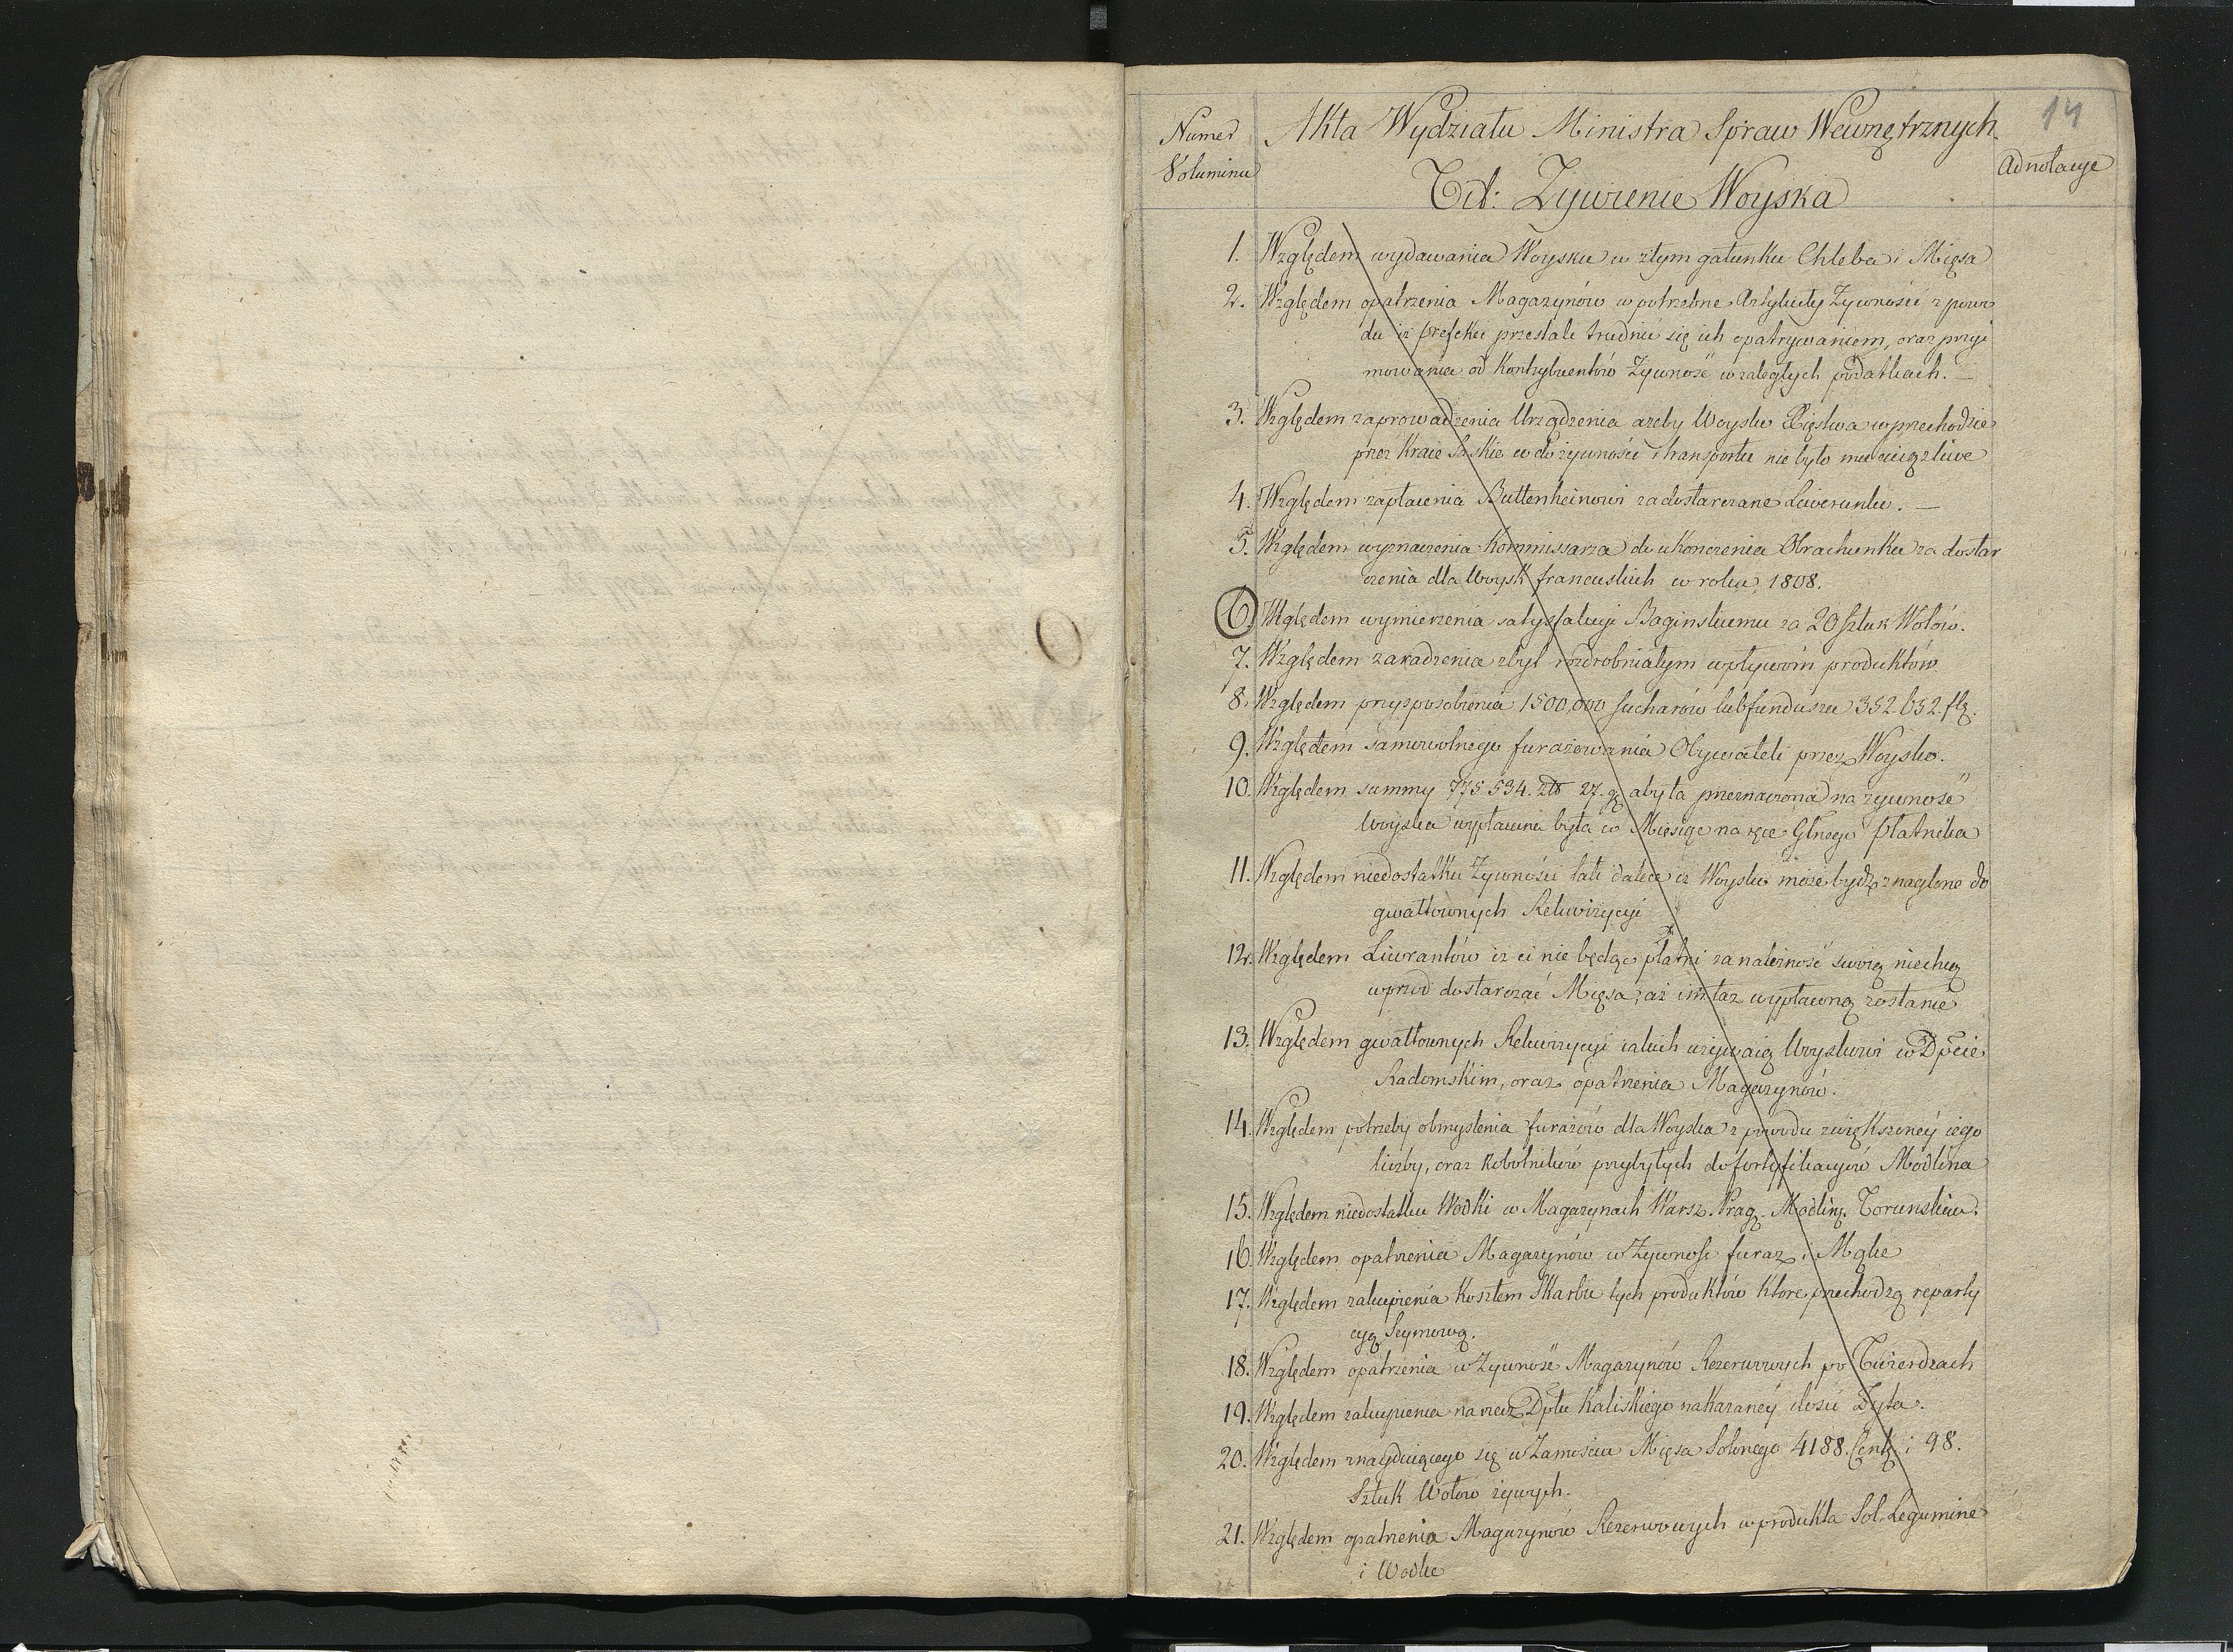 14
Numer
Voluminu
Akta Wydziału Ministra Spraw Wewnętrznych
Adnotacye
Tit: Zywienie Woyska
1. Względem wydawania Woysku w złym gatunku Chleba i Mięsa
2. Względem opatrzenia Magazynów w potrzebne Artykuły Zywności z powo
du iż Prefekci przestali trudnić się ich opatrywaniem, oraz przyi
mowania od Kontrybuentów Zywność w zaległych podatkach. —
3. Względem zaprowadzenia Urządzenia ażeby Woysko Xięstwa w przechodzie
przez Kraie Saskie co do żywności i transportu nie było mu uciążliwe
4. Względem zapłacenia Buttenheinowi za dostarczane Liwerunki. —
5. Względem wyznaczenia Kommissarza do ukończenia Obrachunku za dostar
czenia dla Woysk francuskich w roku 1808.
6. Względem wymierzenia satysfakcyi Baginskiemu za 20 sztuk Wołów.
7. Względem zaradzenia zbyt rozdrobniałym wpływom produktów
8. Względem przysposobienia 1500,000 sucharów lub funduszu 352.652 flp.
9. Względem samowolnego furażowania Obywateli przez Woysko.
10. Względem summy 775 534. Złt 27. g. aby ta przeznaczona na żywność
Woyska wypłacona była co Miesiąc na ręce Głnego Płatnika
11. Względem niedostatku Zywności tak dalece iż Woysko może bydź znaglone do
gwałtownych Rekwizycyi
12. Względem Liwrantów iż ci nie będąc płatni za należność swoią niechcą
wprzod dostarczać Mięsa, aż im taż wypłaconą zostanie
13. Względem gwałtownych Rekwizycyi iakich używaią Woyskowi w Dpcie
Radomskim, oraz opatrzenia Magazynów.
14. Względem potrzeby obmyslenia furażów dla Woyska z powodu zwiększoney iego
liczby, oraz Robotników przybyłych do fortyfikacyów Modlina
15. Względem niedostatku Wodki w Magazynach Warsz. Prag. Modliń. Torunskim.
16. Względem opatrzenia Magazynów w Zywnośc furaż i Mąke
17. Względem zakupienia Kosztem Skarbu tych produktów które przechodzą reparty
cyą Seymową.
18. Względem opatrzenia w Zywność Magazynów Rezerwowych po Twierdzach
19. Względem zakupienia na rzecz Dptu Kaliskiego nakazaney ilosci Zyta.
20. Względem znayduiącego się w Zamościu Mięsa Solonego 4188. Cent. i 98.
Sztuk Wołow żywych.
21. Względem opatrzenia Magazynów Rezerwowych w produkta Sol, Legumine
i Wodke